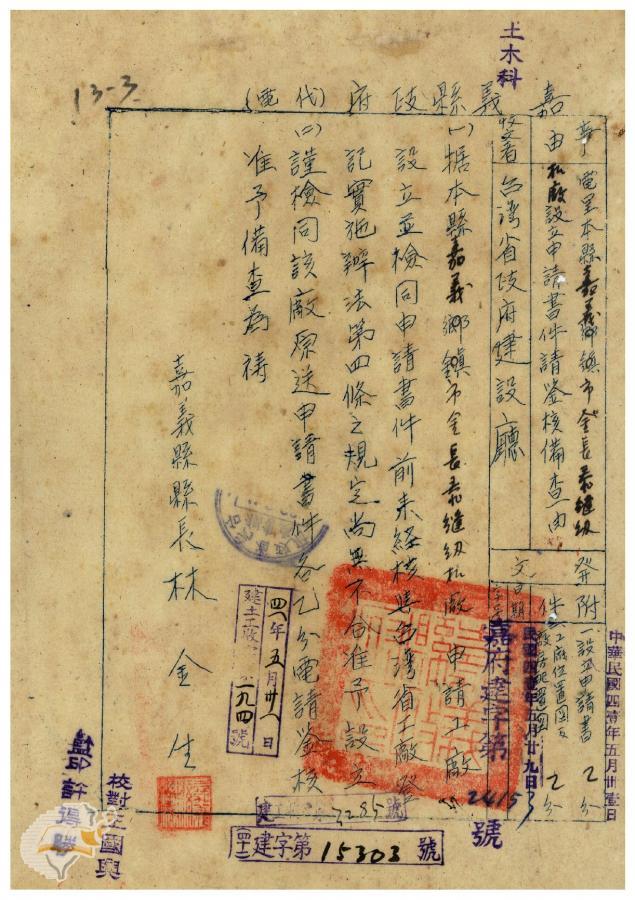 土木科
13-3
嘉義縣政府(代電)
事由
電呈本縣嘉義鄉鎮市金長泰縫紉
機廠設立申請書件請鑒核備查由
附件
一設立申請書乙份
工廠位置圖乙份
受文者
台灣省政府建設廳
發文日期字號
中華民國四壹年五月卅壹日
民國四壹年五月廿九日
嘉府建字第24153號
(一)据本縣嘉義鄉鎮市金長泰縫紉機廠申請工廠
設立並檢同申請書件前來經核與台灣省工廠登
記實施辦法第四條之規定尚無不合准予設立
(二)謹檢同該廠原送申請書件各乙份電請鑒核
准予備查為禱
嘉義縣縣長林金生
四一年五月卅一日
建土工收字一九四號
3285號
四十一建字第15303號
校對王國興
監印許